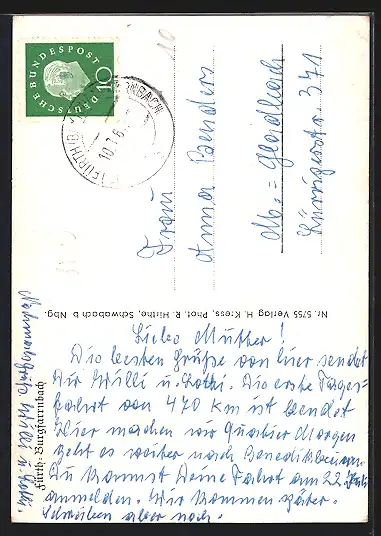 DEUTSCHE BUNDESPOST
10
(FÜRTH/B
10.7.6
Frau
Anna Benders
M.=Gladbach
371
Nr. 5755 Verlag H. Kress, Phot. R. Hirthe, Schwabach b Nbg.
Fürth-Burgfarrnbach
Liebe Mutter!
Die besten Grüße von hier sendet
Dir Willi u. Lothi. Die erste Tages-
fahrt von 470 km ist beendet
Hier machen wir Quartier Morgen
geht es weiter nach Benediktbeuern.
Du kannst Deine Fahrt am 22. Juli
anmelden. Wir kommen später.
Schreiben aber noch.
Nochmals Grüße Willi u. Lothi.